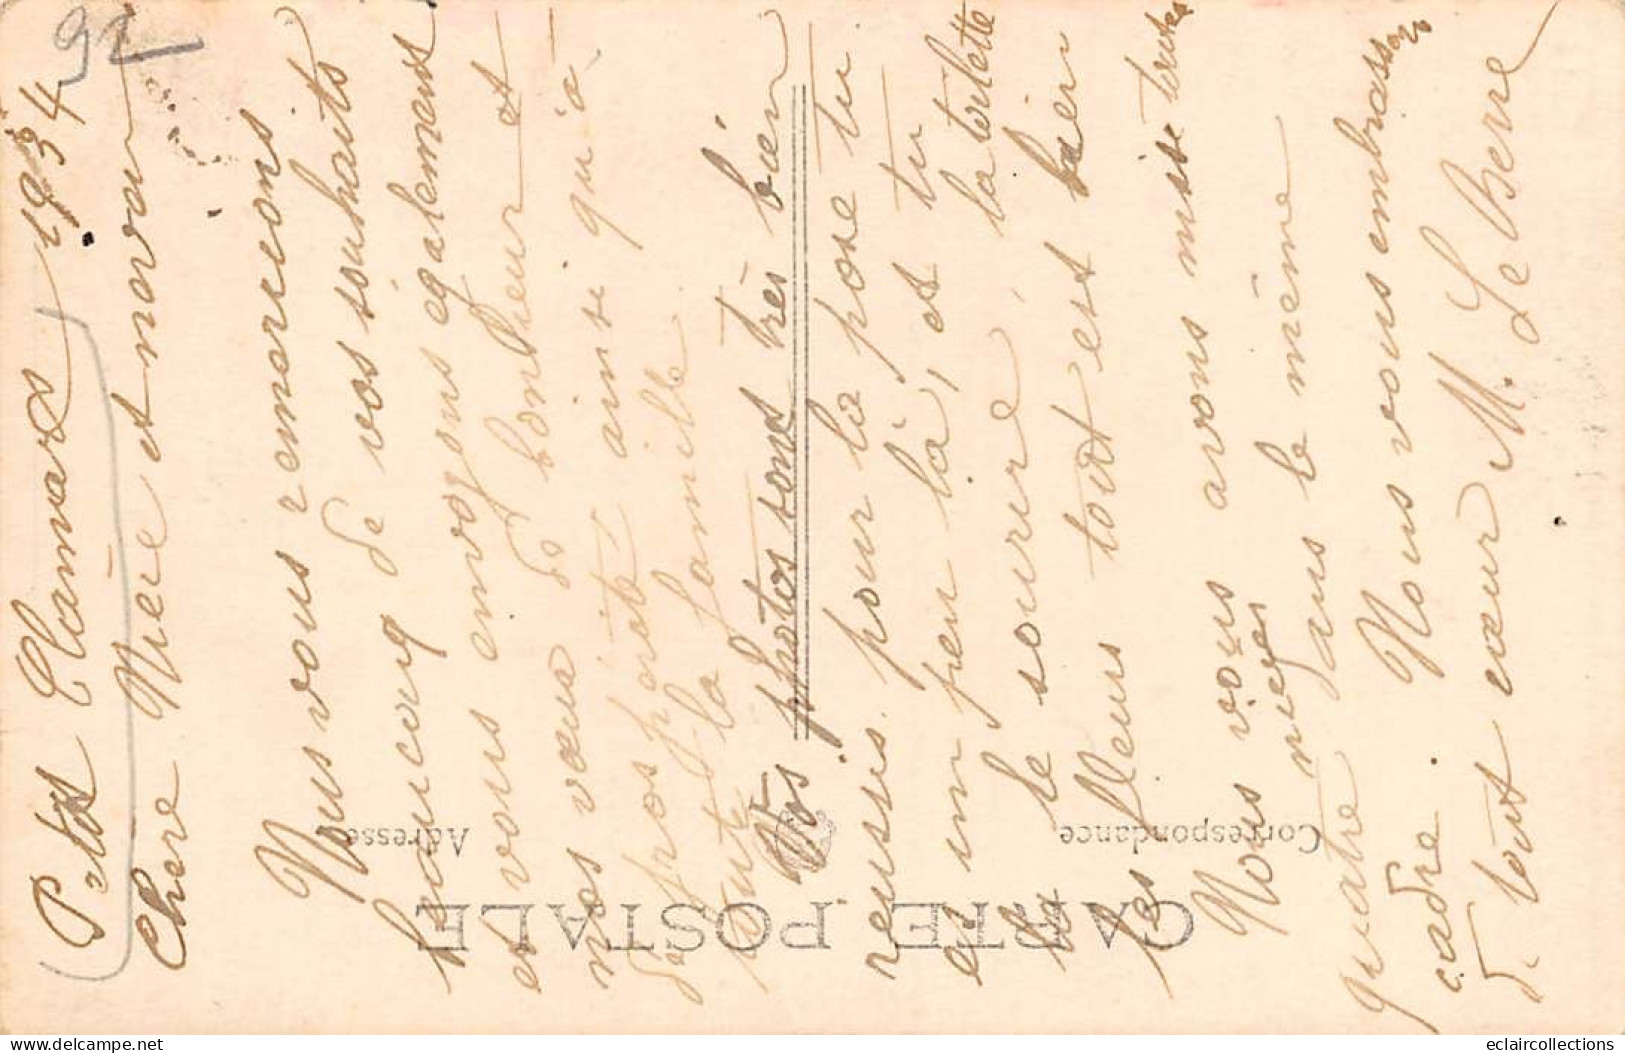 92
Petit Clamart 1934
Chère Niece et novan
Nous vous remercions
beaucoup de vos souhaits
et vous envoyons également
nos vœux de bonheur et
de prospérité ainsi qu'à
toute la famille.
Vos photos sont très bien
reussis. pour la pose tu
es un peu là, et tu
la le sourire la toilette
les fleurs tout est bien
Nous vous avons mise toutes
quatre dans le même
cadre. Nous vous embrassons
de tout cœur M. Le Berre
CARTE POSTALE
Correspondance
Adresse
delcampe.net
eclaircollections